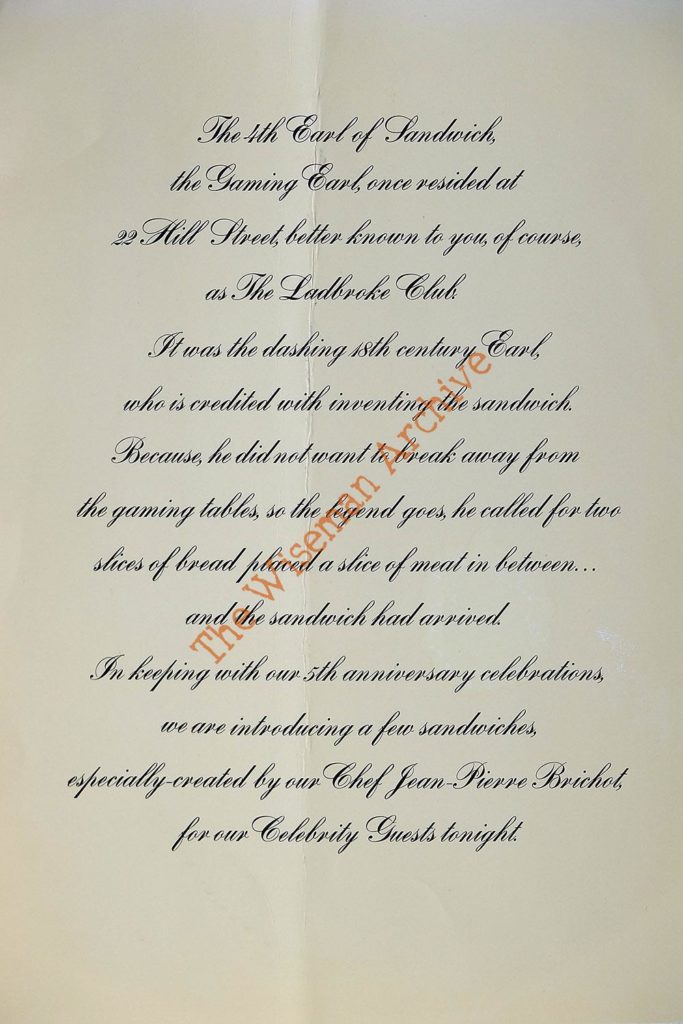 The 4th Earl of Sandwich,
the Gaming Earl, once resided at
22 Hill Street, better known to you, of course,
as The Ladbroke Club.
It was the dashing 18th century Earl,
who is credited with inventing the sandwich.
Because, he did not want to break away from
the gaming tables, so the legend goes, he called for two
slices of bread placed a slice of meat in between...
and the sandwich had arrived.
In keeping with our 5th anniversary celebrations,
we are introducing a few sandwiches,
especially-created by our Chef Jean-Pierre Brichot,
for our Celebrity Guests tonight.
The Wiseman Archive